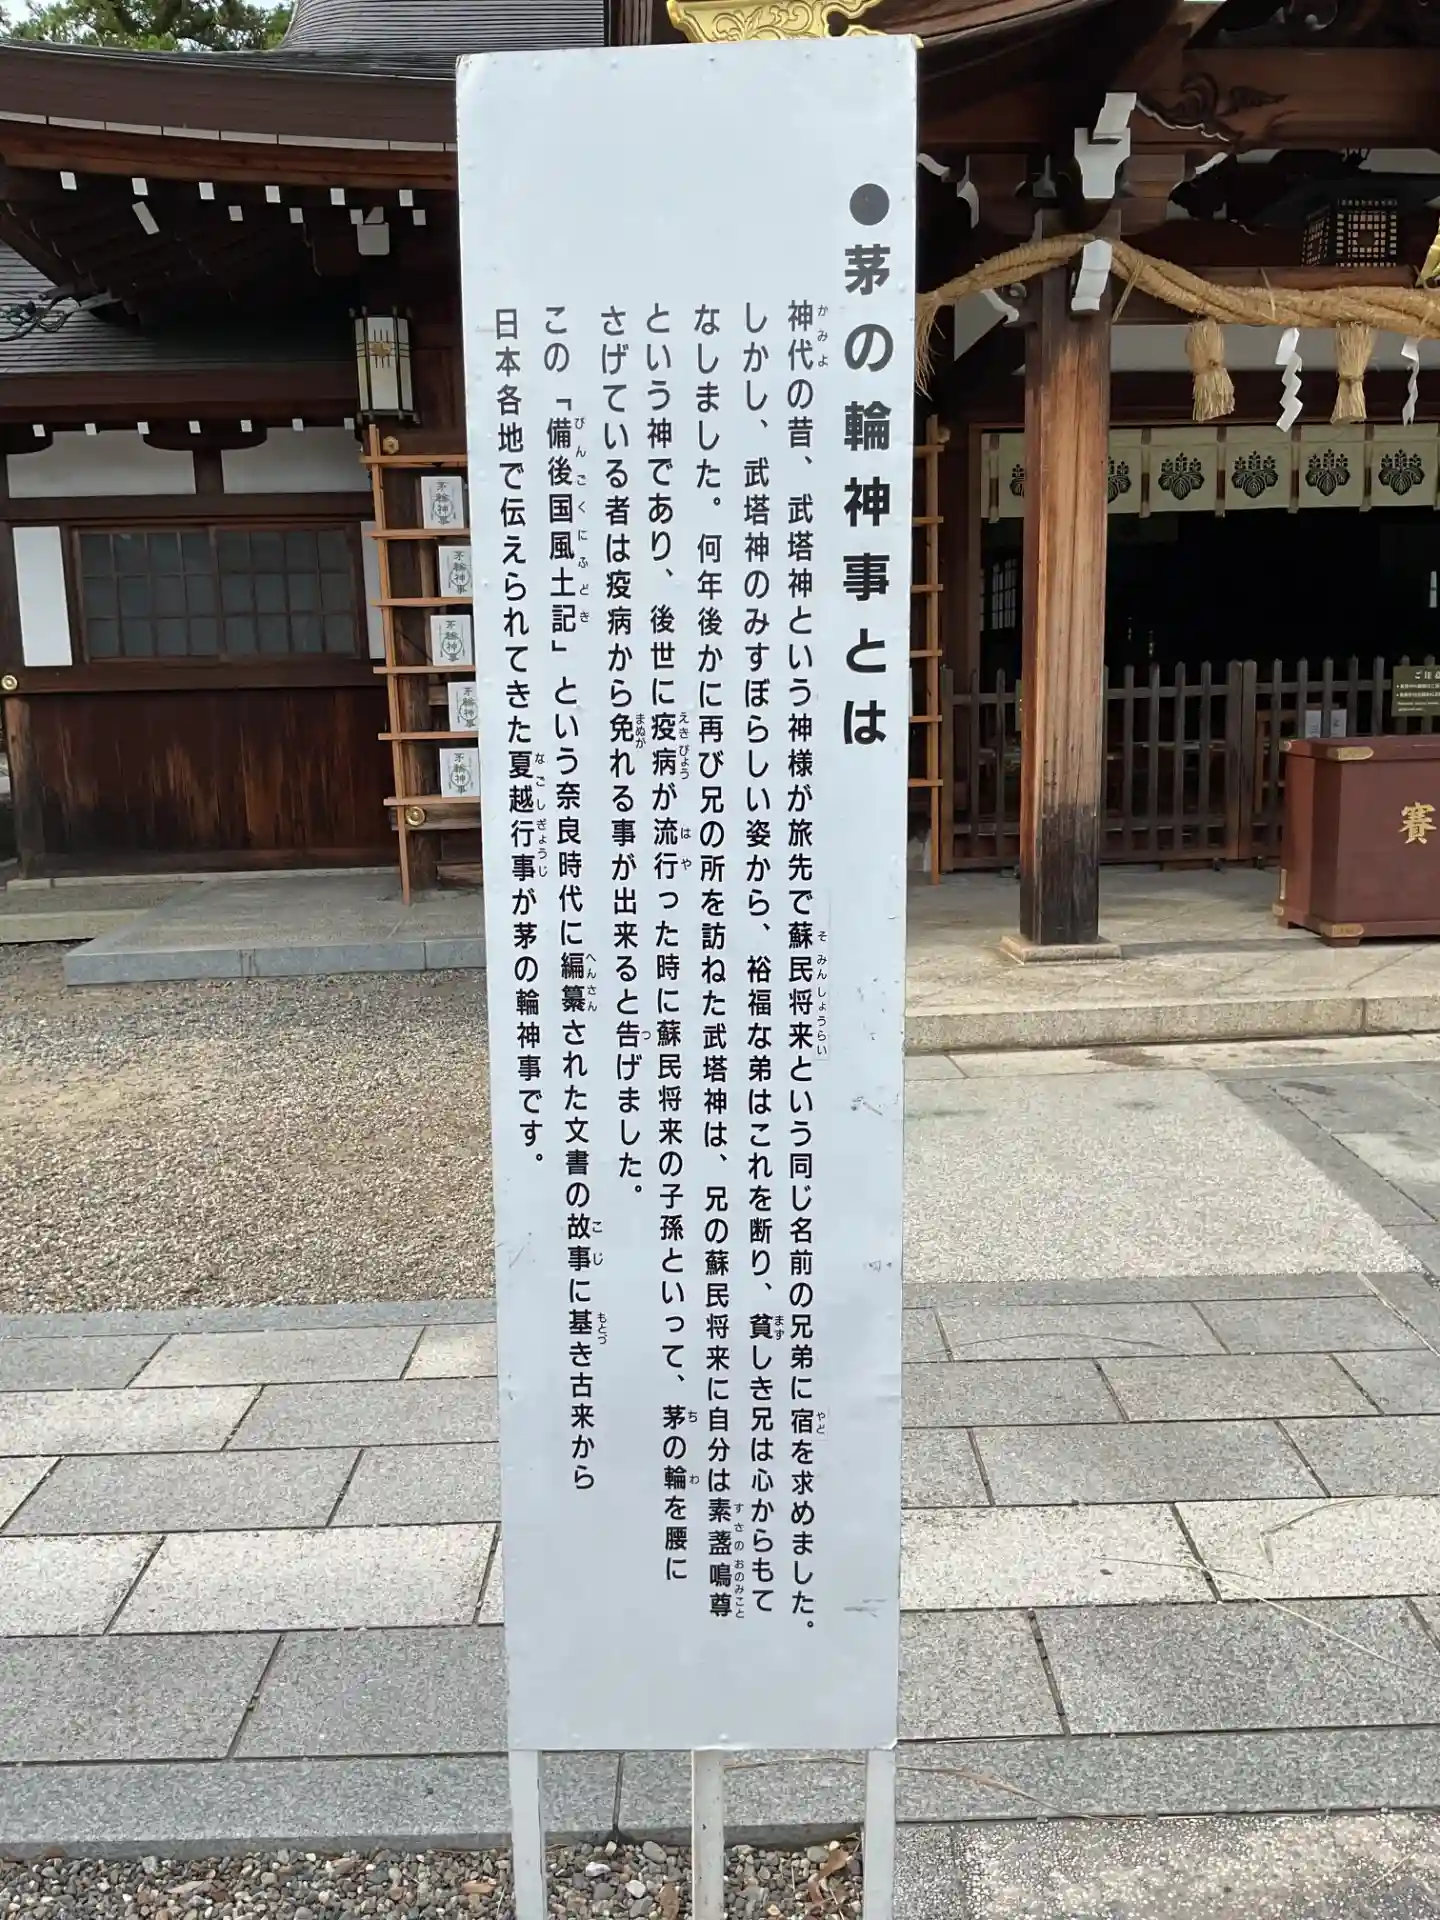 ●茅の輪神事とは
神代の昔、武塔神という神様が旅先で蘇民将来という同じ名前の兄弟に宿を求めました。
しかし、武塔神のみすぼらしい姿から、裕福な弟はこれを断り、貧しき兄は心からもて
なしました。何年後かに再び兄の所を訪ねた武塔神は、兄の蘇民将来に自分は素盞鳴尊
という神であり、後世に疫病が流行った時に蘇民将来の子孫といって、茅の輪を腰に
さげている者は疫病から免れる事が出来ると告げました。
この「備後国風土記」という奈良時代に編纂された文書の故事に基き古来から
日本各地で伝えられてきた夏越行事が茅の輪神事です。
茅輪神事
茅輪神事
茅輪神事
茅輪神事
茅輪神事
賽